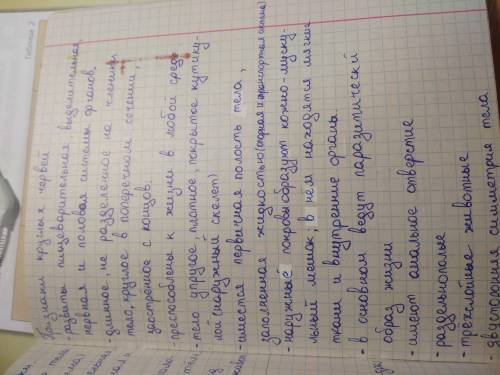 Признаки круглых червей
- развиты пищеварительная, выделительная,
нервная и половая системы органов.
- длинное, не разделенное на членики
тело, круглое в поперечном сечении,
заостренное с концов.
- преспособлены к жизни в любой среде
- тело упругое, плотное, покрытое кутику-
лой (наружный скелет)
- имеется первичная полость тела,
заполненная жидкостью (опорная и транспортная система)
- наружные покровы образуют кожно-муску-
льный мешок; в нем находятся мягкие
ткани и внутренние органы
- в основном ведут паразитический
образ жизни
- имеют анальное отверстие
- раздельнополые
- трехслойные животные
- двусторонняя симметрия тела